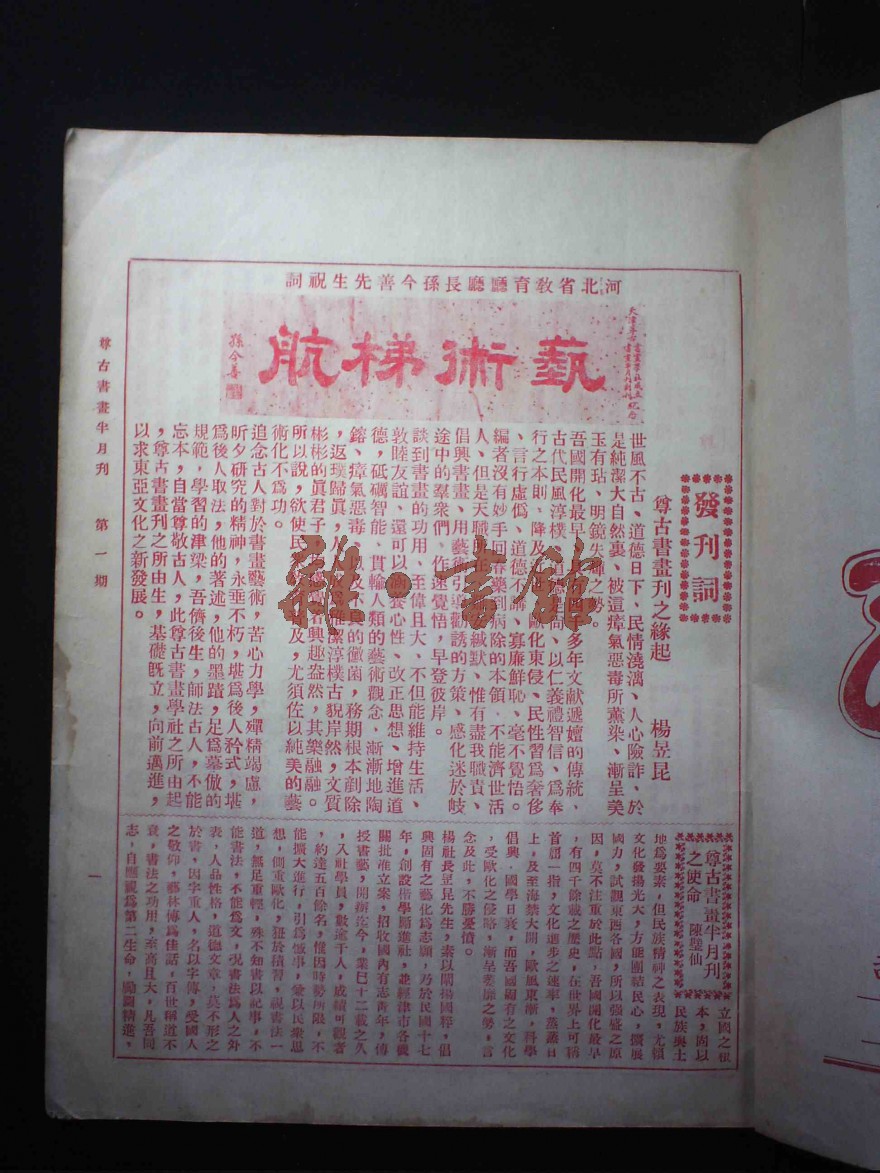 河北省教育廳廳長孫今善先生祝詞
藝術梯航
孫今善
發刊詞
尊古書畫刊之緣起　楊昱昆
世風不古、道德日下、民情澆漓、人心險詐、於
是純潔大自然裏、被這瘴氣惡毒所薰染、漸呈美
玉有玷、明鏡失
之勢。
吾國開化最早、
多年文献遞嬗的傳統、
古代民風淳樸、
以仁義禮智信、爲奉
行之本則、降及
歐化東侵、民性習爲奢侈
、言行虛僞、道德不講、寡廉鮮恥、毫不覺悟。
編者沒有妙手回春藥到病除的本領、不能濟世活
人、但是天職所在
緘默、惟有盡我職責、
倡興書畫、用藝術引導勸誘的方策、感化迷於岐
途中的羣衆們、作速覺悟，早登彼岸。
談到書畫的功用、至偉且大、不但能維持生活、
敦睦友誼、還可以涵養心性、改正思想、增進道
德，砥礪智能、貫輸人類的藝術觀念、漸漸地陶
鎔、瘴氣惡毒、以及不
的黴菌，務期根本剷除
，返璞歸眞，人
潔淳樸古貌岸然，文質
彬彬的眞君子，
名興趣盎然，其樂融融。
所以說，欲使民
及，尤須佐以純美的藝
術化不爲功。
追念古人對於書畫藝術，苦心力學，殫精竭慮，
昕夕研究的精神，永垂不朽，堪爲後人矜式，堪
爲後人取法，他的著述，他的墨蹟，足爲摹倣的
規範，學習的津梁，吾儕後生，師法古人，不能
忘本，自當尊敬古人，此尊古書畫學社之所由起
，尊古書畫刊之所由生，基礎旣立，向前邁進，
以求東亞文化之新發展。
尊古書畫半月刊
之使命　陳璧仙
立國之根
本，尚以
民族與土
地爲要素，但民族精神之表現，尤須
文化發揚光大，方能團結民心，擴展
國力，試觀東西各國，所以强盛之原
因，莫不注重於此點，吾國開化最早
，有四千餘載之歷史，在世界上可稱
首屈一指，文化進步之速率，蒸蒸日
上，及至海禁大開，歐風東漸，科學
倡興，國學日衰，而吾國固有之文化
，受歐化之侵略，漸呈萎靡之勢，言
念及此，不勝憂憤。
楊社長昱昆先生，素以闡揚國粹，倡
興固有之藝化爲志願，乃於民國十七
年，創設楷學勵進社，並經津市各機
關批准立案，招收國內有志靑年，傳
授書藝，開辦迄今，業已十二載之久
，入社學員，數逾千人，成績可觀者
，約達五百餘名，惟因時勢所限，不
能擴大進行，引爲憾事，爰以民衆思
想，側重歐化，狃於積習，視書法一
道，無足重輕，殊不知書以記事，不
能書法，不能爲文，況書法爲人之外
表，人品性格，道德文章，莫不形之
於書，因字重人，名以字傳，受國人
之敬仰，藝林傳爲佳話，百世稱道不
衰，書法之功用，至高且大，凡吾同
志，自應視爲第二生命，勵園精進，
尊古書畫半月刊　第一期
一
雜·書館